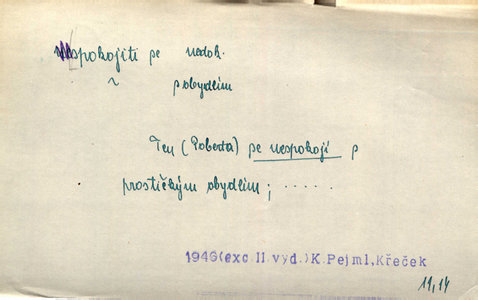 nespokojiti se nedok.
~ s obydlím
Ten (Poberta) se nespokojí s
prostičkým obydlím; ......
1946(exc.II.vyd.)K.Pejml,Křeček
11,14